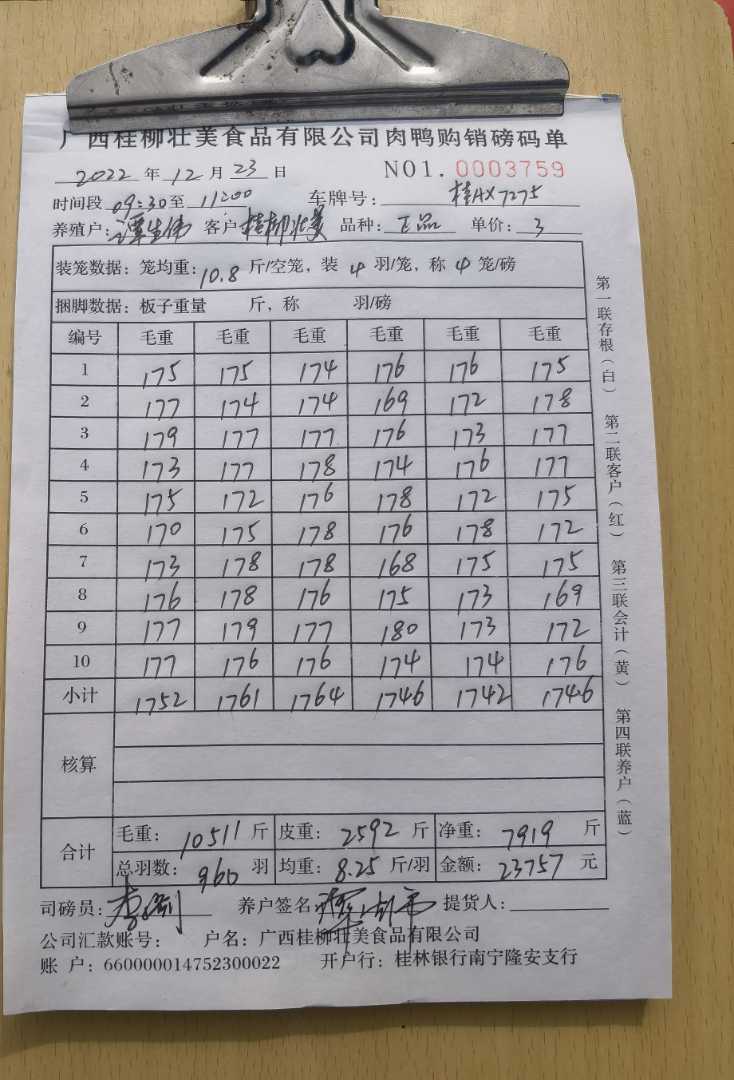 广西桂柳壮美食品有限公司肉鸭购销磅码单
2022 年 12 月 23 日 NO1. 0003759
时间段 09:30 至 11:00 车牌号: 桂AX7275
养殖户: 谭生伟 客户 桂柳壮美 品种: 正品 单价: 3
装笼数据: 笼均重: 10.8 斤/空笼, 装 4 羽/笼, 称 4 笼/磅
捆脚数据: 板子重量 斤, 称 羽/磅
编号 毛重 毛重 毛重 毛重 毛重 毛重
1 175 175 174 176 176 175
2 177 174 174 169 172 178
3 179 177 177 176 173 177
4 173 177 178 174 176 177
5 175 172 176 178 172 175
6 170 175 178 176 178 172
7 173 178 178 168 175 175
8 176 178 176 175 173 169
9 177 179 177 180 173 172
10 177 176 176 174 174 176
小计 1752 1761 1764 1746 1742 1746
核算
合计 毛重: 10511 斤 皮重: 2592 斤 净重: 7919 斤
总羽数: 960 羽 均重: 8.25 斤/羽 金额: 23757 元
司磅员: 养户签名: 提货人:
公司汇款账号: 户名: 广西桂柳壮美食品有限公司
账 户: 660000014752300022 开户行: 桂林银行南宁隆安支行
第一联存根(白) 第二联客户(红) 第三联会计(黄) 第四联养户(蓝)